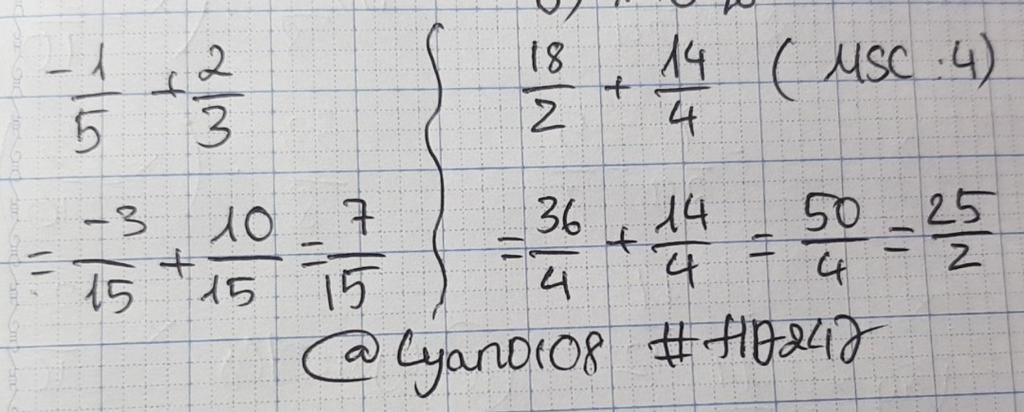 -1/5 + 2/3
= -3/15 + 10/15 = 7/15
18/2 + 14/4 (MSC: 4)
= 36/4 + 14/4 = 50/4 = 25/2